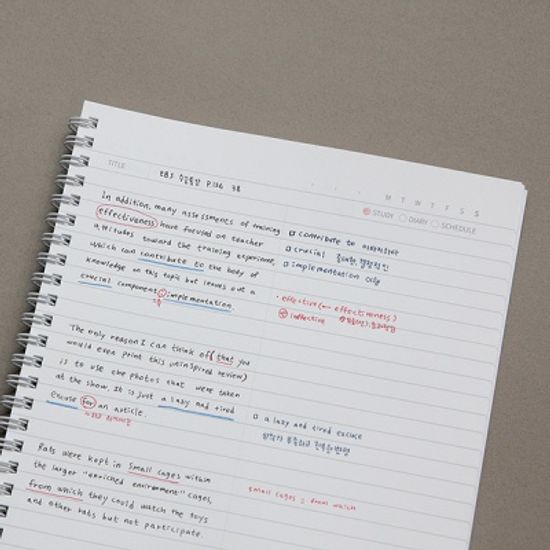 M T W T F S S
TITLE EBS 수능특강 P.136 3번
STUDY DIARY SCHEDULE
In addition, many assessments of training
effectiveness have focused on teacher
attitudes toward the training experience,
which can contribute to the body of
knowledge on this topic but leaves out a
crucial component, implementation.
□ contribute to 이바지하다
□ crucial 중대한, 결정적인
□ implementation
• effective (↔ effectiveness)
ineffective
The only reason I can think of (that you
would even print this uninspired review)
is to use the photos that were taken
at the show. It is just a lazy and tired
excuse for an article.
□ a lazy and tired excuse
Rats were kept in small cages within
the larger "enriched environment" cages,
from which they could watch the toys
and other rats but not participate.
small cages = from which